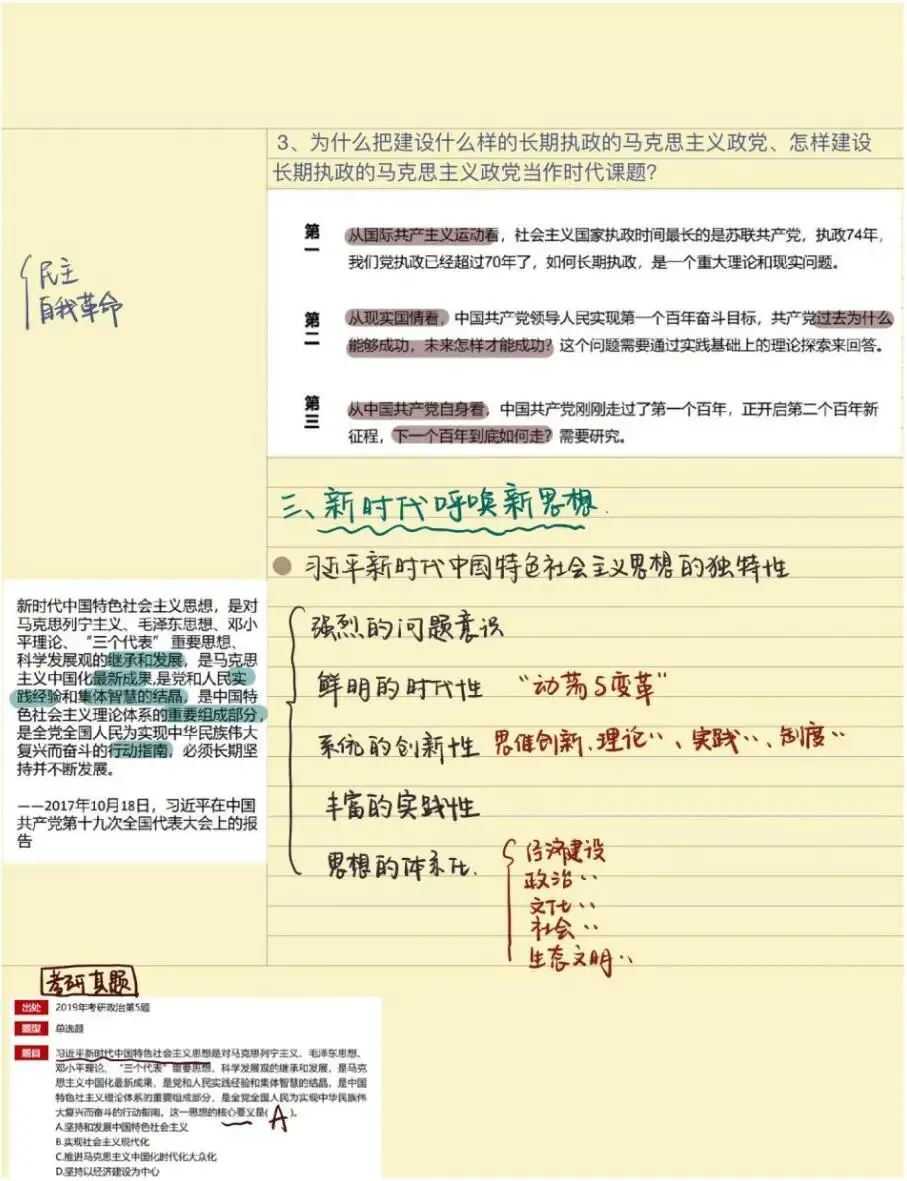 3、为什么把建设什么样的长期执政的马克思主义政党、怎样建设
长期执政的马克思主义政党当作时代课题?
民主
自我革命
第一
从国际共产主义运动看，社会主义国家执政时间最长的是苏联共产党，执政74年，
我们党执政已经超过70年了，如何长期执政，是一个重大理论和现实问题。
第二
从现实国情看，中国共产党领导人民实现第一个百年奋斗目标，共产党过去为什么
能够成功，未来怎样才能成功？这个问题需要通过实践基础上的理论探索来回答。
第三
从中国共产党自身看，中国共产党刚刚走过了第一个百年，正开启第二个百年新
征程，下一个百年到底如何走？需要研究。
三、新时代呼唤新思想.
习近平新时代中国特色社会主义思想的独特性
强烈的问题意识
鲜明的时代性 “动荡与变革”
系统的创新性 思维创新、理论〃、实践〃、制度〃
丰富的实践性
思想的体系化.
经济建设
政治〃
文化〃
社会〃
生态文明〃
新时代中国特色社会主义思想，是对
马克思列宁主义、毛泽东思想、邓小
平理论、“三个代表”重要思想、
科学发展观的继承和发展，是马克思
主义中国化最新成果,是党和人民实
践经验和集体智慧的结晶，是中国特
色社会主义理论体系的重要组成部分，
是全党全国人民为实现中华民族伟大
复兴而奋斗的行动指南，必须长期坚
持并不断发展。
——2017年10月18日，习近平在中国
共产党第十九次全国代表大会上的报
告
考研真题
出处 2019年考研政治第5题
题型 单选题
题目 习近平新时代中国特色社会主义思想是对马克思列宁主义、毛泽东思想、
邓小平理论、“三个代表”重要思想、科学发展观的继承和发展，是马克
思主义中国化最新成果，是党和人民实践经验和集体智慧的结晶，是中国
特色社会主义理论体系的重要组成部分，是全党全国人民为实现中华民族伟
大复兴而奋斗的行动指南。这一思想的核心要义是( A )。
A.坚持和发展中国特色社会主义
B.实现社会主义现代化
C.推进马克思主义中国化时代化大众化
D.坚持以经济建设为中心